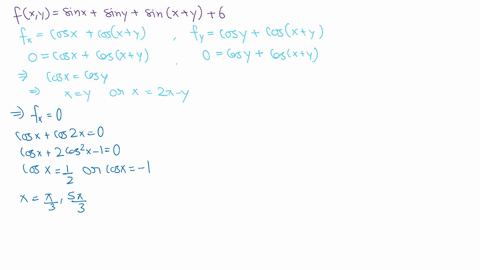 f(x,y) = sinx + siny + sin(x+y) + 6
fx = cosx + cos(x+y) , fy = cosy + cos(x+y)
0 = cosx + cos(x+y) 0 = cosy + cos(x+y)
⇒ cosx = cosy
⇒ x=y or x = 2π-y
⇒ fx = 0
cosx + cos2x = 0
cosx + 2cos²x-1 = 0
cosx = 1/2 or cosx = -1
x = π/3, 5π/3